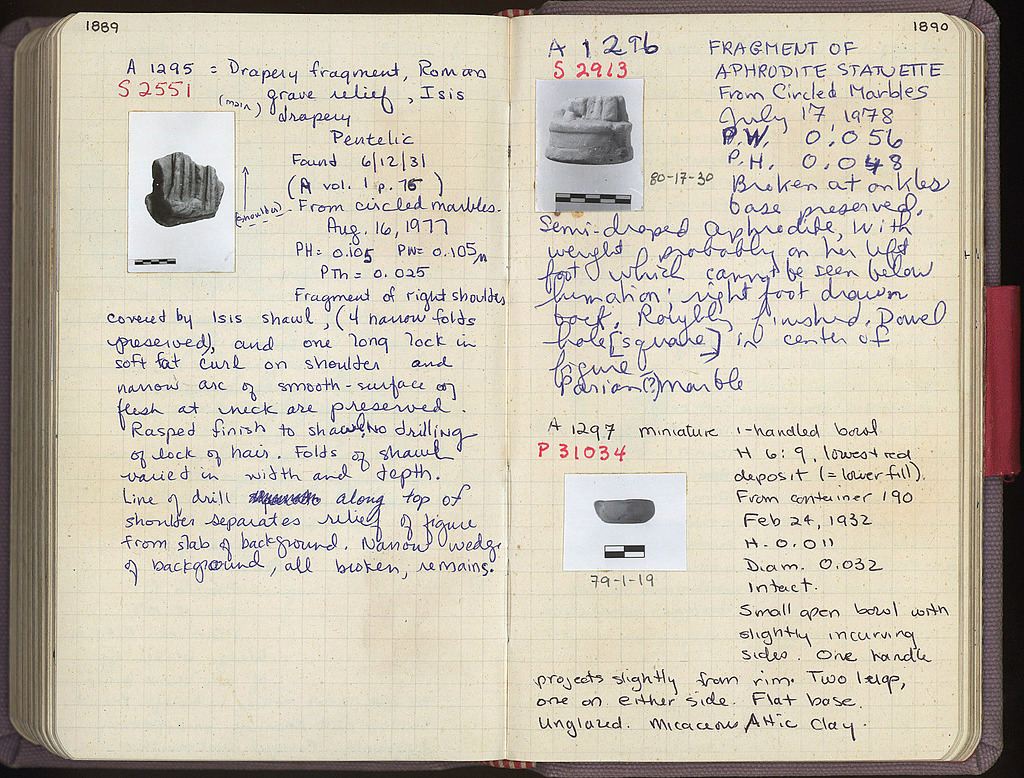 1889
A 1295 = Drapery fragment, Roman
S 2551
(main) grave relief, Isis
drapery
Pentelic
Found 6/12/31
(A vol. 1 p. 75)
(shoulder)
From circled marbles.
Aug. 16, 1977
PH = 0.105 PW = 0.105 m
PTh = 0.025
Fragment of right shoulder
covered by Isis shawl, (4 narrow folds
preserved), and one long lock in
soft fat curl on shoulder and
narrow arc of smooth-surface of
flesh at neck are preserved.
Rasped finish to shawl, No drilling
of lock of hair. Folds of shawl
varied in width and depth.
Line of drill along top of
shoulder separates relief of figure
from slab of background. Narrow wedge
of background, all broken, remains.
1890
A 1296
S 2913
FRAGMENT OF
APHRODITE STATUETTE
From Circled Marbles
July 17, 1978
P.W. 0.056
P.H. 0.048
80-17-30
Broken at ankles
base preserved.
Semi-draped aphrodite, with
weight probably on her left
foot which cannot be seen below
himation; right foot drawn
back. Roughly finished. Dowel
hole [square] in center of
figure
Parian(?) marble
A 1297 miniature 1-handled bowl
P 31034
H 6:9, lowest red
deposit (= lower fill).
From container 190
Feb 24, 1932
H. 0.011
Diam. 0.032
Intact.
79-1-19
Small open bowl with
slightly incurving
sides. One handle
projects slightly from rim. Two lugs,
one on either side. Flat base.
Unglazed. Micaceous Attic clay.